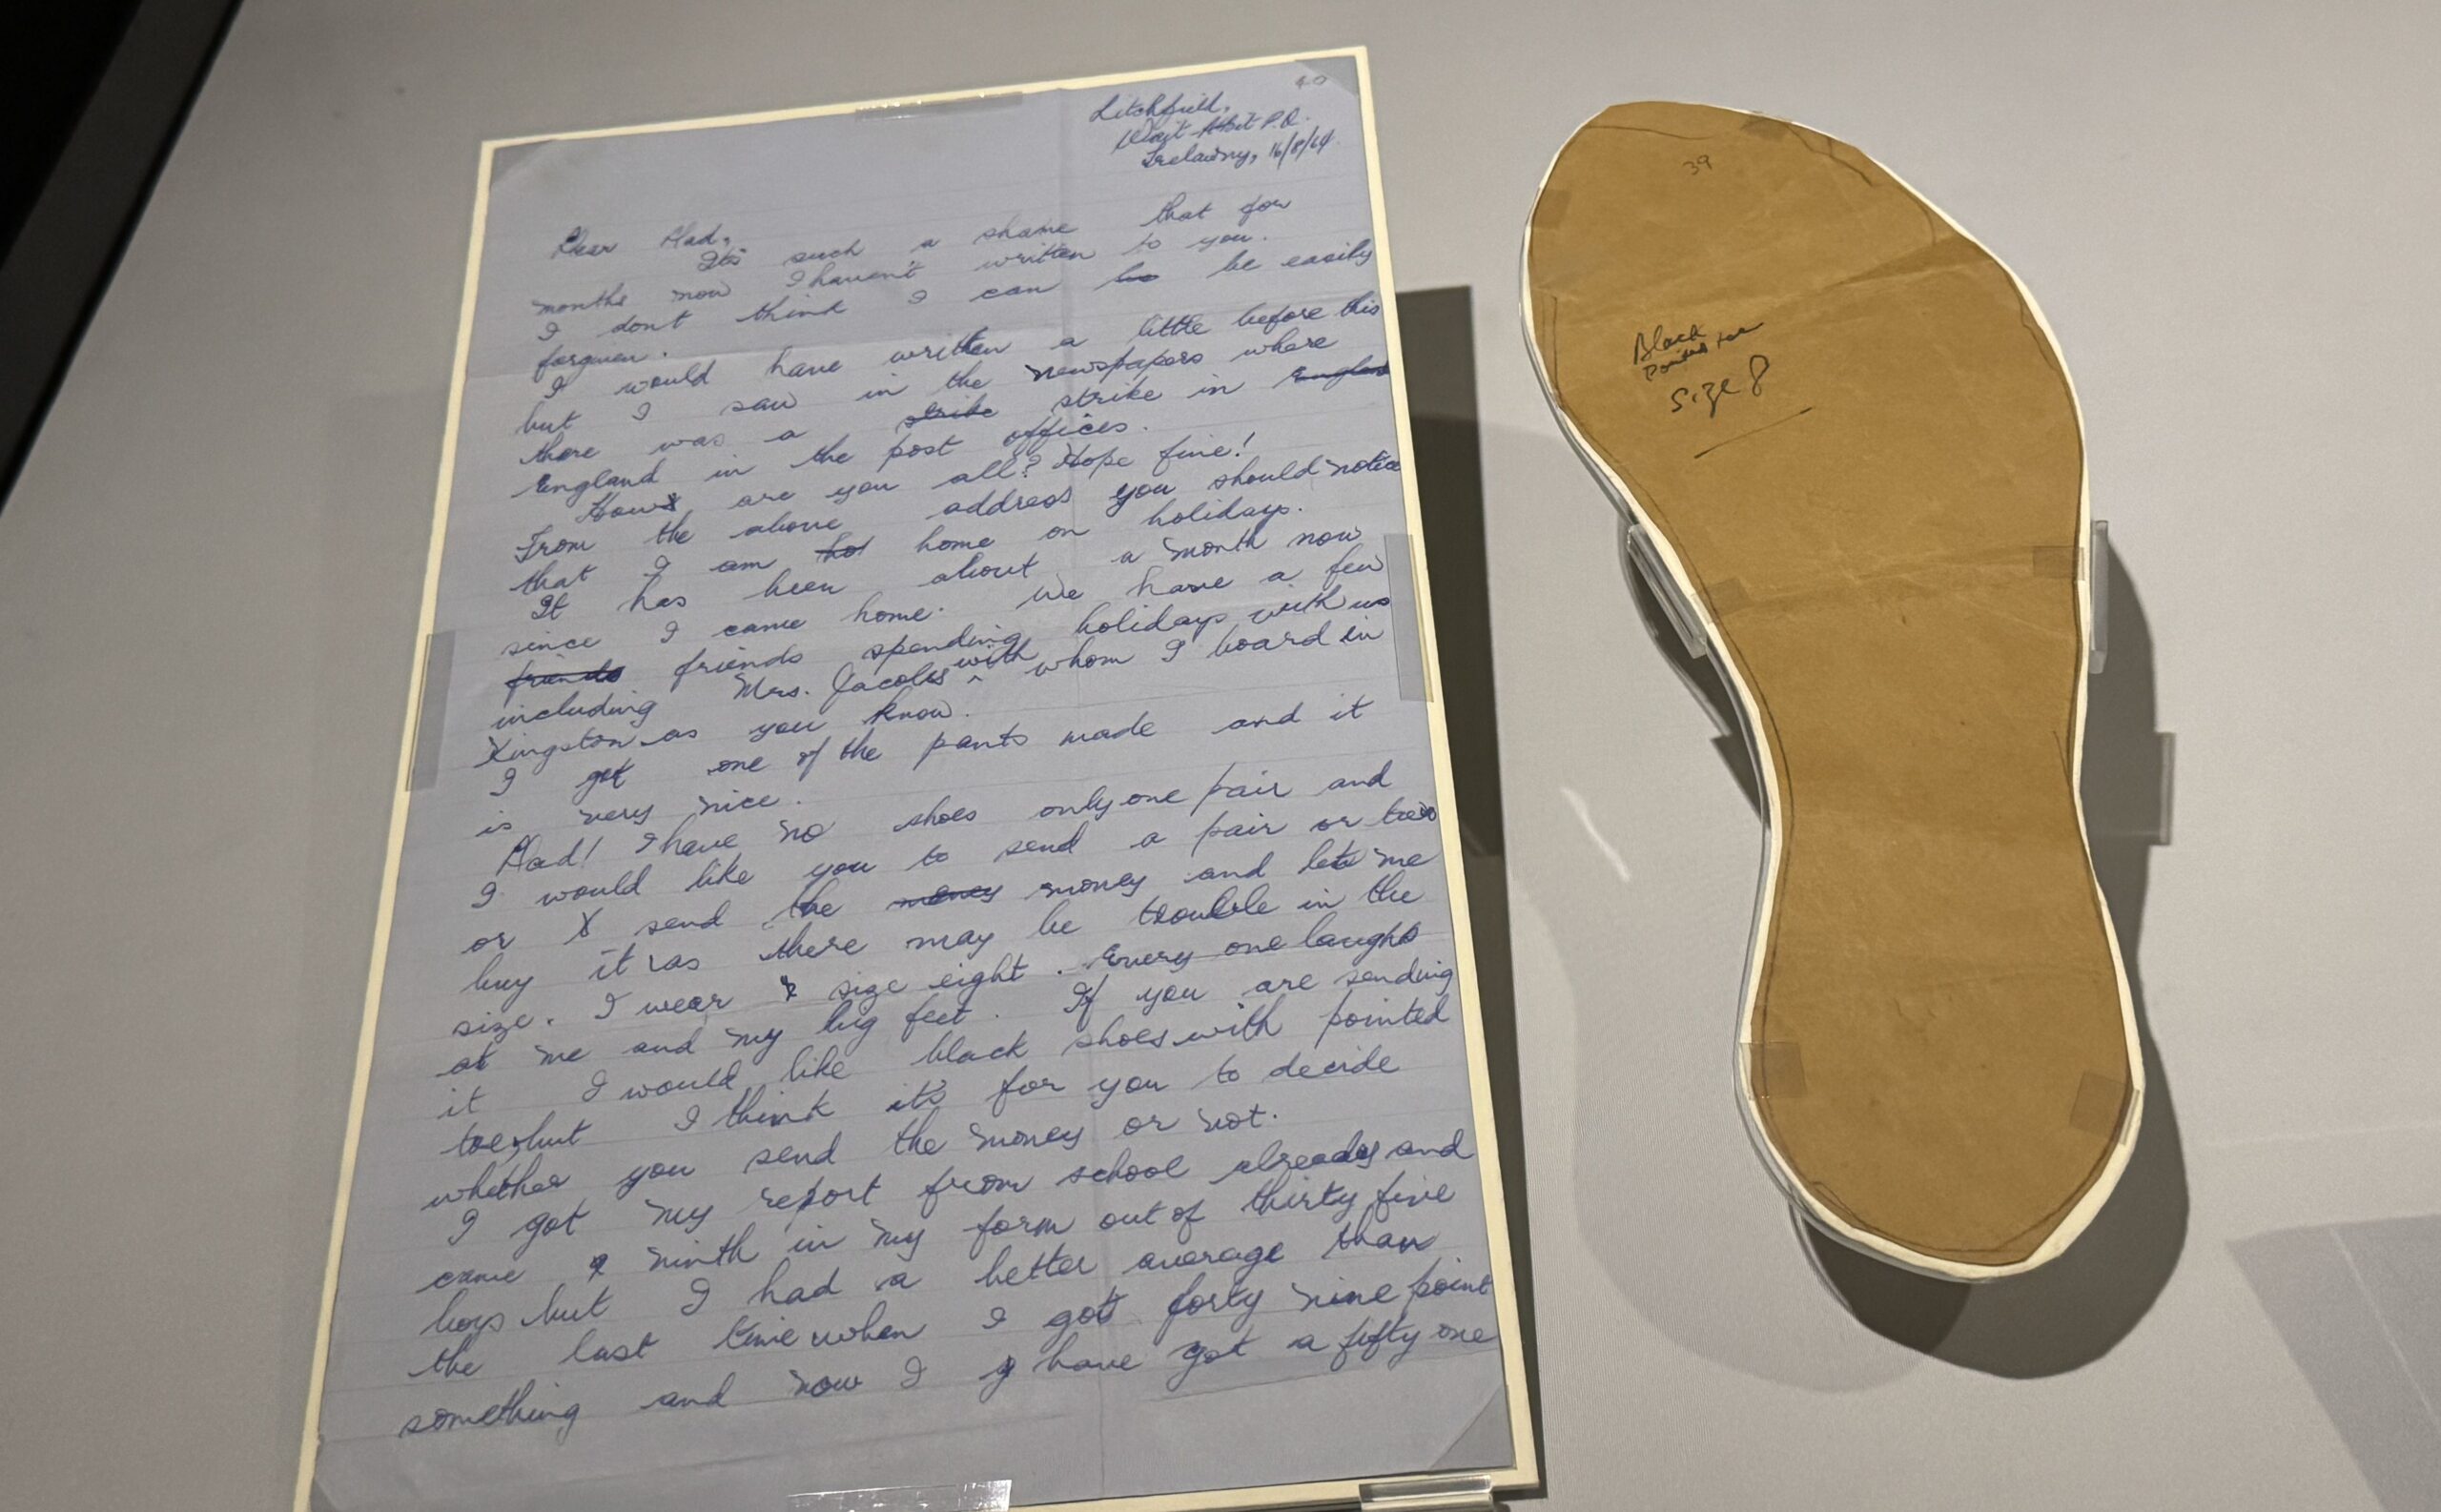 40
Litchfield,
Wait-A-Bit P.O.
Trelawny, 16/8/64
Dear Dad,
Its such a shame that for
months now I haven't written to you.
I dont think I can be be easily
forgiven.
I would have written a little before this
but I saw in the newspapers where
there was a strike strike in England
England in the post offices.
How are you all? Hope fine!
From the above address you should notice
that I am hol home on holidays.
It has been about a month now
since I came home. We have a few
friends friends spending holidays with us
including Mrs. Jacobs with whom I board in
Kingston as you know.
I got one of the pants made and it
is very nice.
Dad! I have no shoes only one pair and
I would like you to send a pair or two
or send the money money and let me
buy it as there may be trouble in the
size. I wear size eight. Every one laughs
at me and my big feet. If you are sending
it I would like black shoes with pointed
toes but I think it's for you to decide
whether you send the money or not.
I got my report from school already and
came ninth in my form out of thirty five
boys but I had a better average than
the last time when I got forty nine point
something and now I have got a fifty one
39
Black
Pointed toe
Size 8